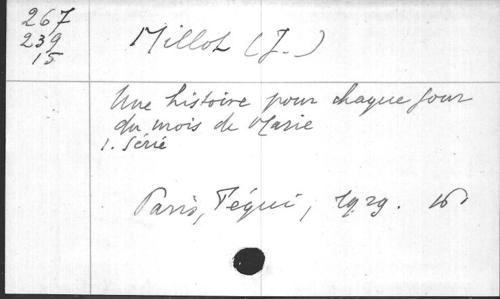 267
239
15
Millot (J.)
Une histoire pour chaque jour
du mois de Marie
1. série
Paris, Téqui, 1929. 16°